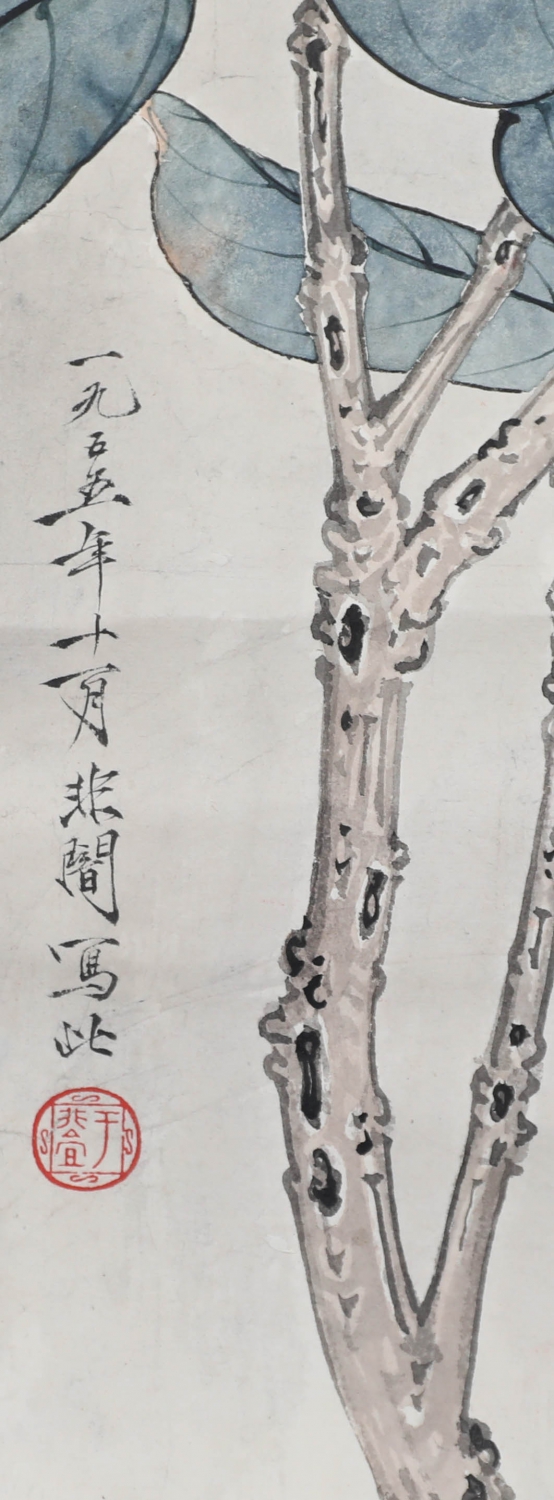 一九五五年十一月非闇寫此
于非